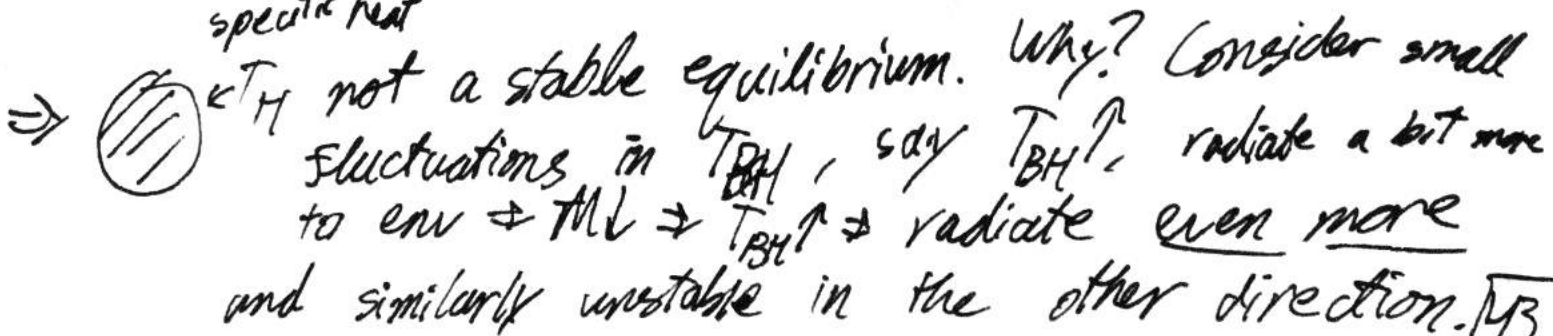 specific heat
⇒ ←T_H not a stable equilibrium. Why? Consider small
fluctuations in T_BH, say T_BH↑, radiate a bit more
to env ⇒ M↓ ⇒ T_BH↑ ⇒ radiate even more
and similarly unstable in the other direction.